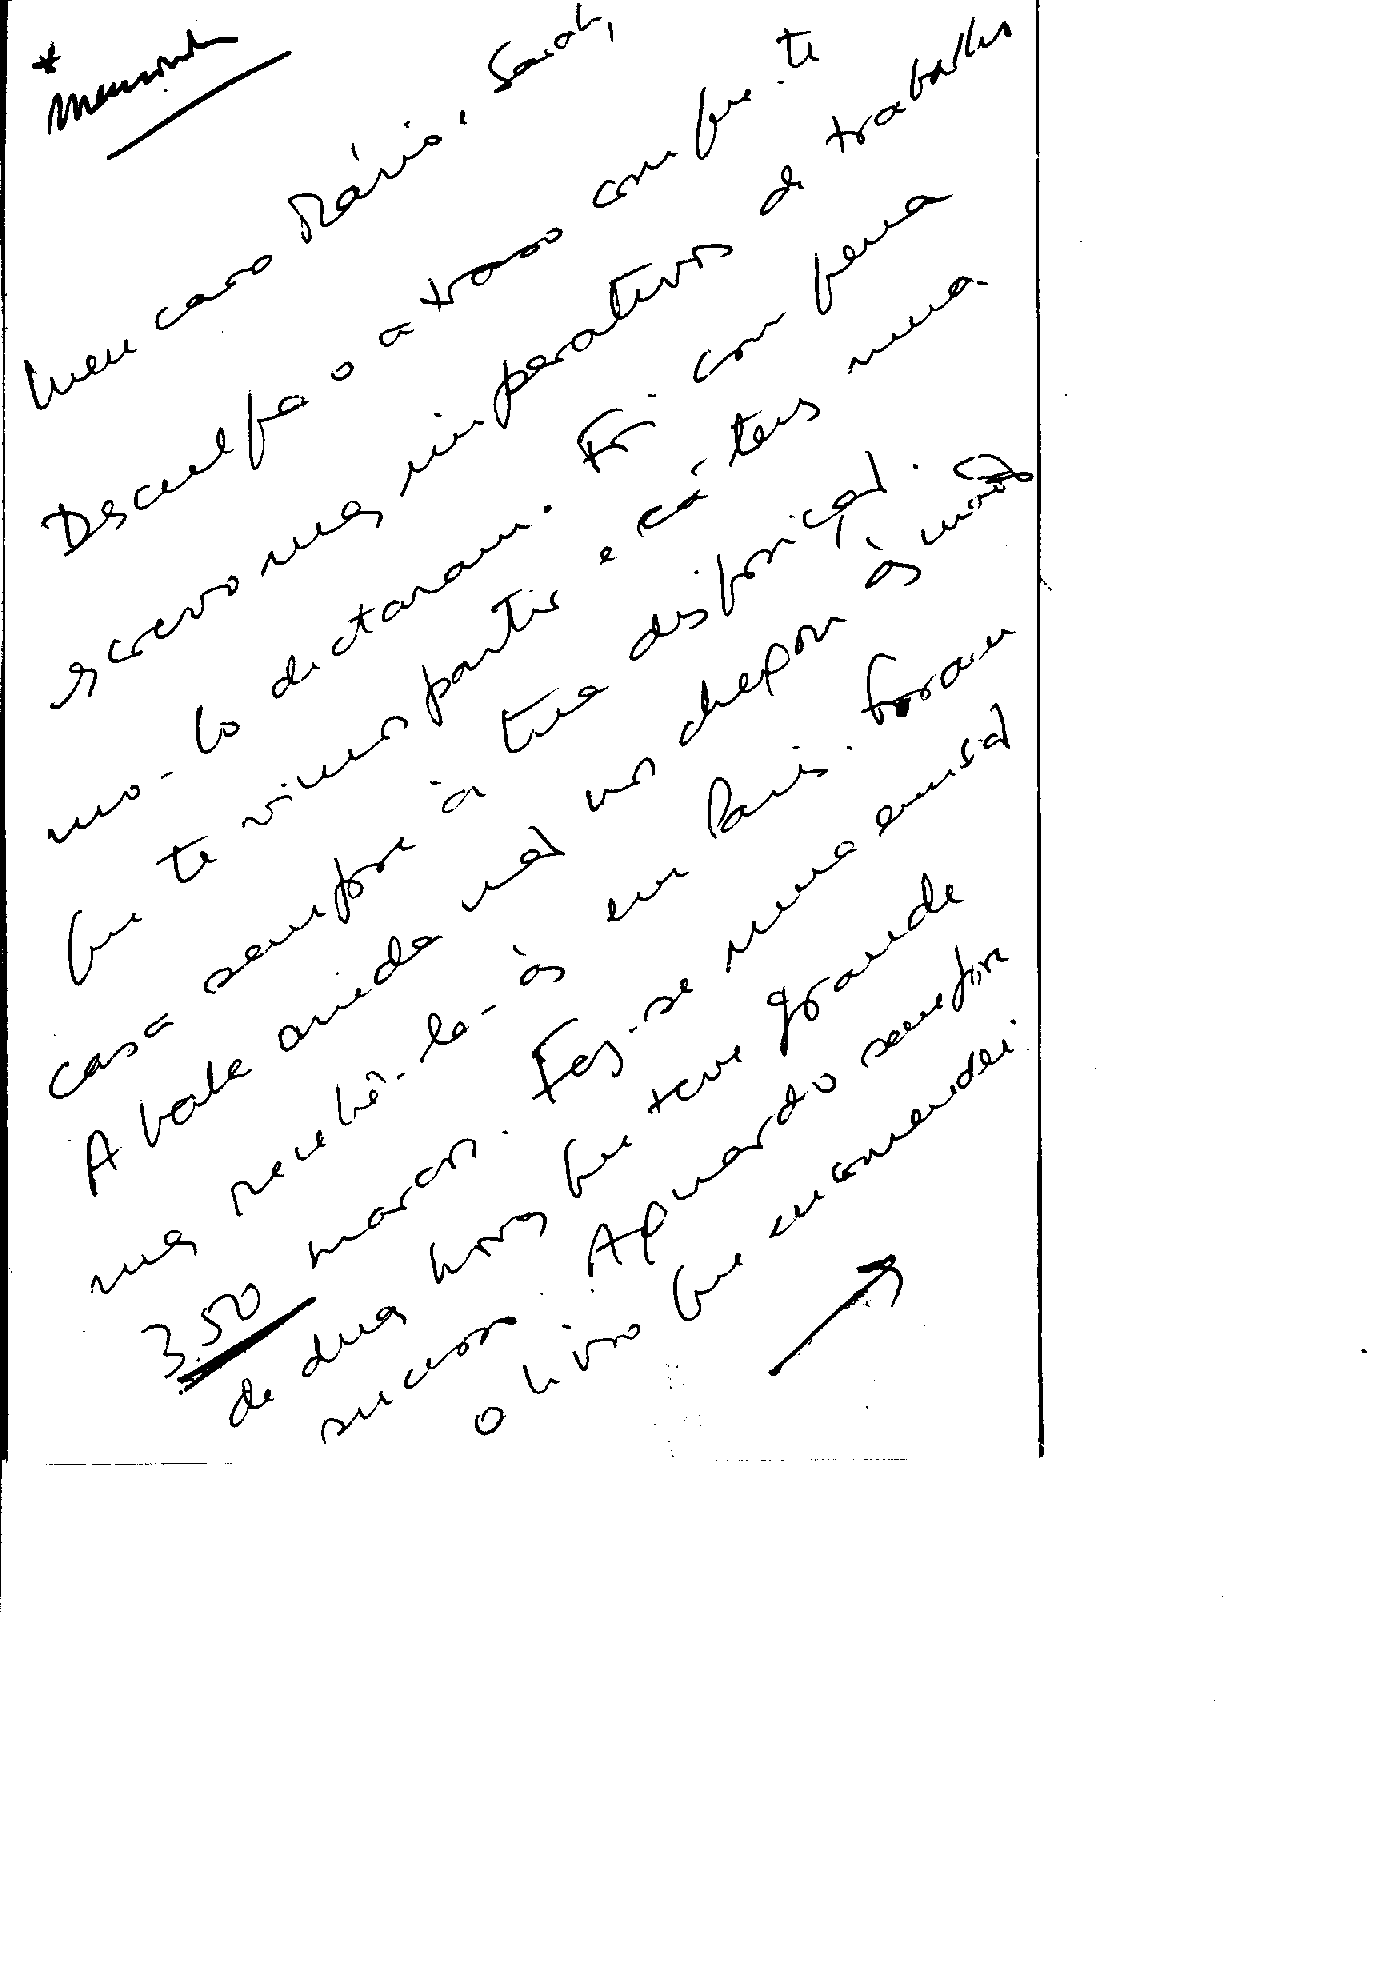 *
Meu caro Mário, Saúde,
Desculpa o atraso com que te
escrevo mas imperativos de trabalho
mo-lo dictaram. Foi com pena
que te vimos partir e cá tens uma
casa sempre à tua disposição.
A bata ainda não nos chegou às mãos
mas recebê-la-ás em Paris. Foram
3.50 marcos. Fez-se uma emissão
de duas horas que teve grande
sucesso. Aguardo sempre
o livro que encomendei.